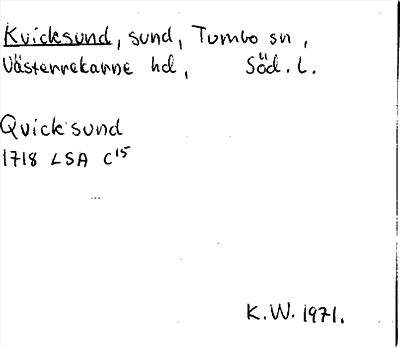 Kvicksund, sund, Tumbo sn,
Västerrekarne hd, Söd. l.
Quicksund
1718 LSA C15
K.W. 1971.